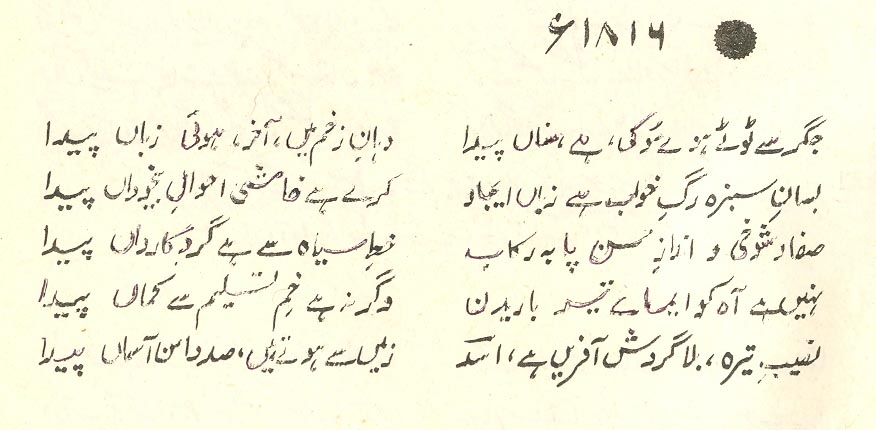 ۱۸۱۶ء
جگر سے ٹوٹے ہوئے مو کی، ہے، سناں پیدا دہانِ زخم میں، آخر، ہوئی زباں پیدا
بسانِ سبزہ رگِ خواب ہے زباں ایجاد کرے ہے خامشی احوالِ بیخوداں پیدا
صفا و شوخی و اندازِ حسن پا بہ رکاب خطِ سیاہ سے ہے گردِ کارواں پیدا
نہیں ہے آہ کو ایمائے تیر باریدن وگرنہ ہے خمِ تسلیم سے کماں پیدا
نصیبِ تیرہ، بلا گردش آفریں ہے، اسدؔ زمیں سے ہوتے ہیں، صد دامن آسماں پیدا